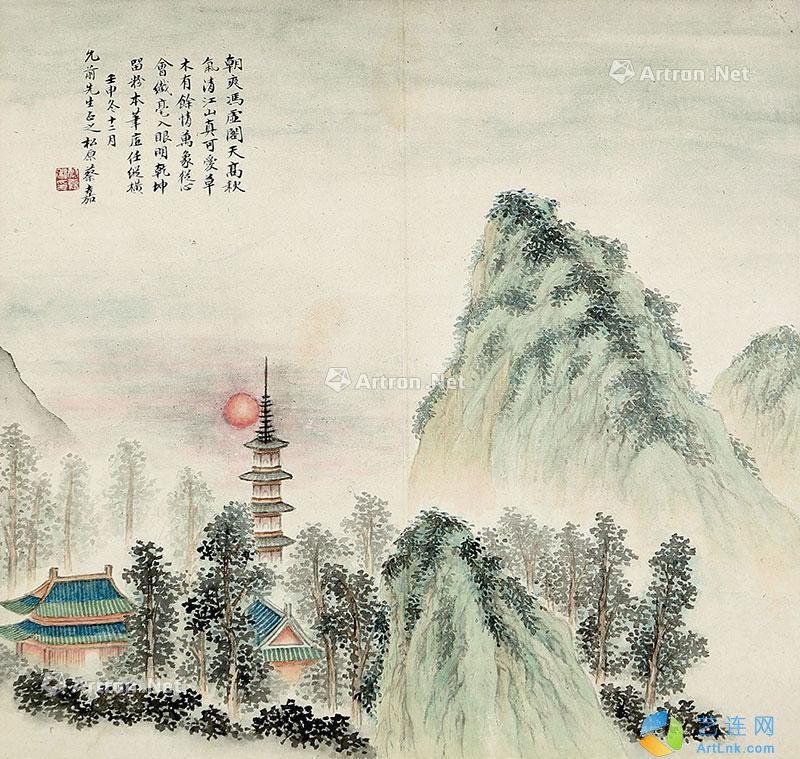 朝爽馮虛閣天高秋
氣清江山真可愛草
木有餘情萬象從心
會纖毫入眼明乾坤
留粉本筆底任縱橫
壬申冬十二月
允前先生正之松原蔡嘉
Artron.Net
Artron.Net
Artron.Net
Artron.Net
艺连网
ArtLnk.com